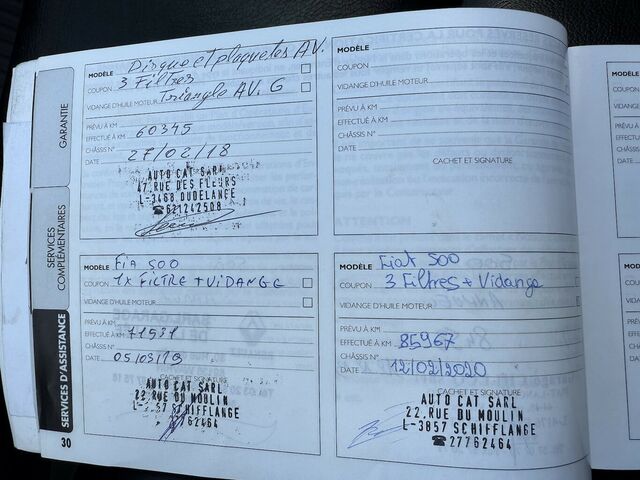 GARANTIE
SERVICES
COMPLÉMENTAIRES
SERVICES D'ASSISTANCE
30
Disque et plaquetes AV.
MODÈLE
3 Filtres
COUPON
Triangle AV. G
VIDANGE D'HUILE MOTEUR
PRÉVU À KM
EFFECTUÉ À KM 60345
CHÂSSIS N°
DATE 27/02/18
AUTO CAT SARL
47, RUE DES FLEURS
L-3468 DUDELANGE
☎621242508
MODÈLE
COUPON
VIDANGE D'HUILE MOTEUR
PRÉVU À KM
EFFECTUÉ À KM
CHÂSSIS N°
DATE
CACHET ET SIGNATURE
MODÈLE Fia 500
COUPON 1x FILTRE + VIDANGE
VIDANGE D'HUILE MOTEUR
PRÉVU À KM
EFFECTUÉ À KM 71531
CHÂSSIS N°
DATE 05/03/19
CACHET ET SIGNATURE
AUTO CAT SARL
22, RUE DU MOULIN
L-3857 SCHIFFLANGE
62464
MODÈLE Fiat 500
COUPON 3 Filtres + Vidange
VIDANGE D'HUILE MOTEUR
PRÉVU À KM
EFFECTUÉ À KM 85967
CHÂSSIS N°
DATE 12/02/2020
CACHET ET SIGNATURE
AUTO CAT SARL
22, RUE DU MOULIN
L-3857 SCHIFFLANGE
☎27762464